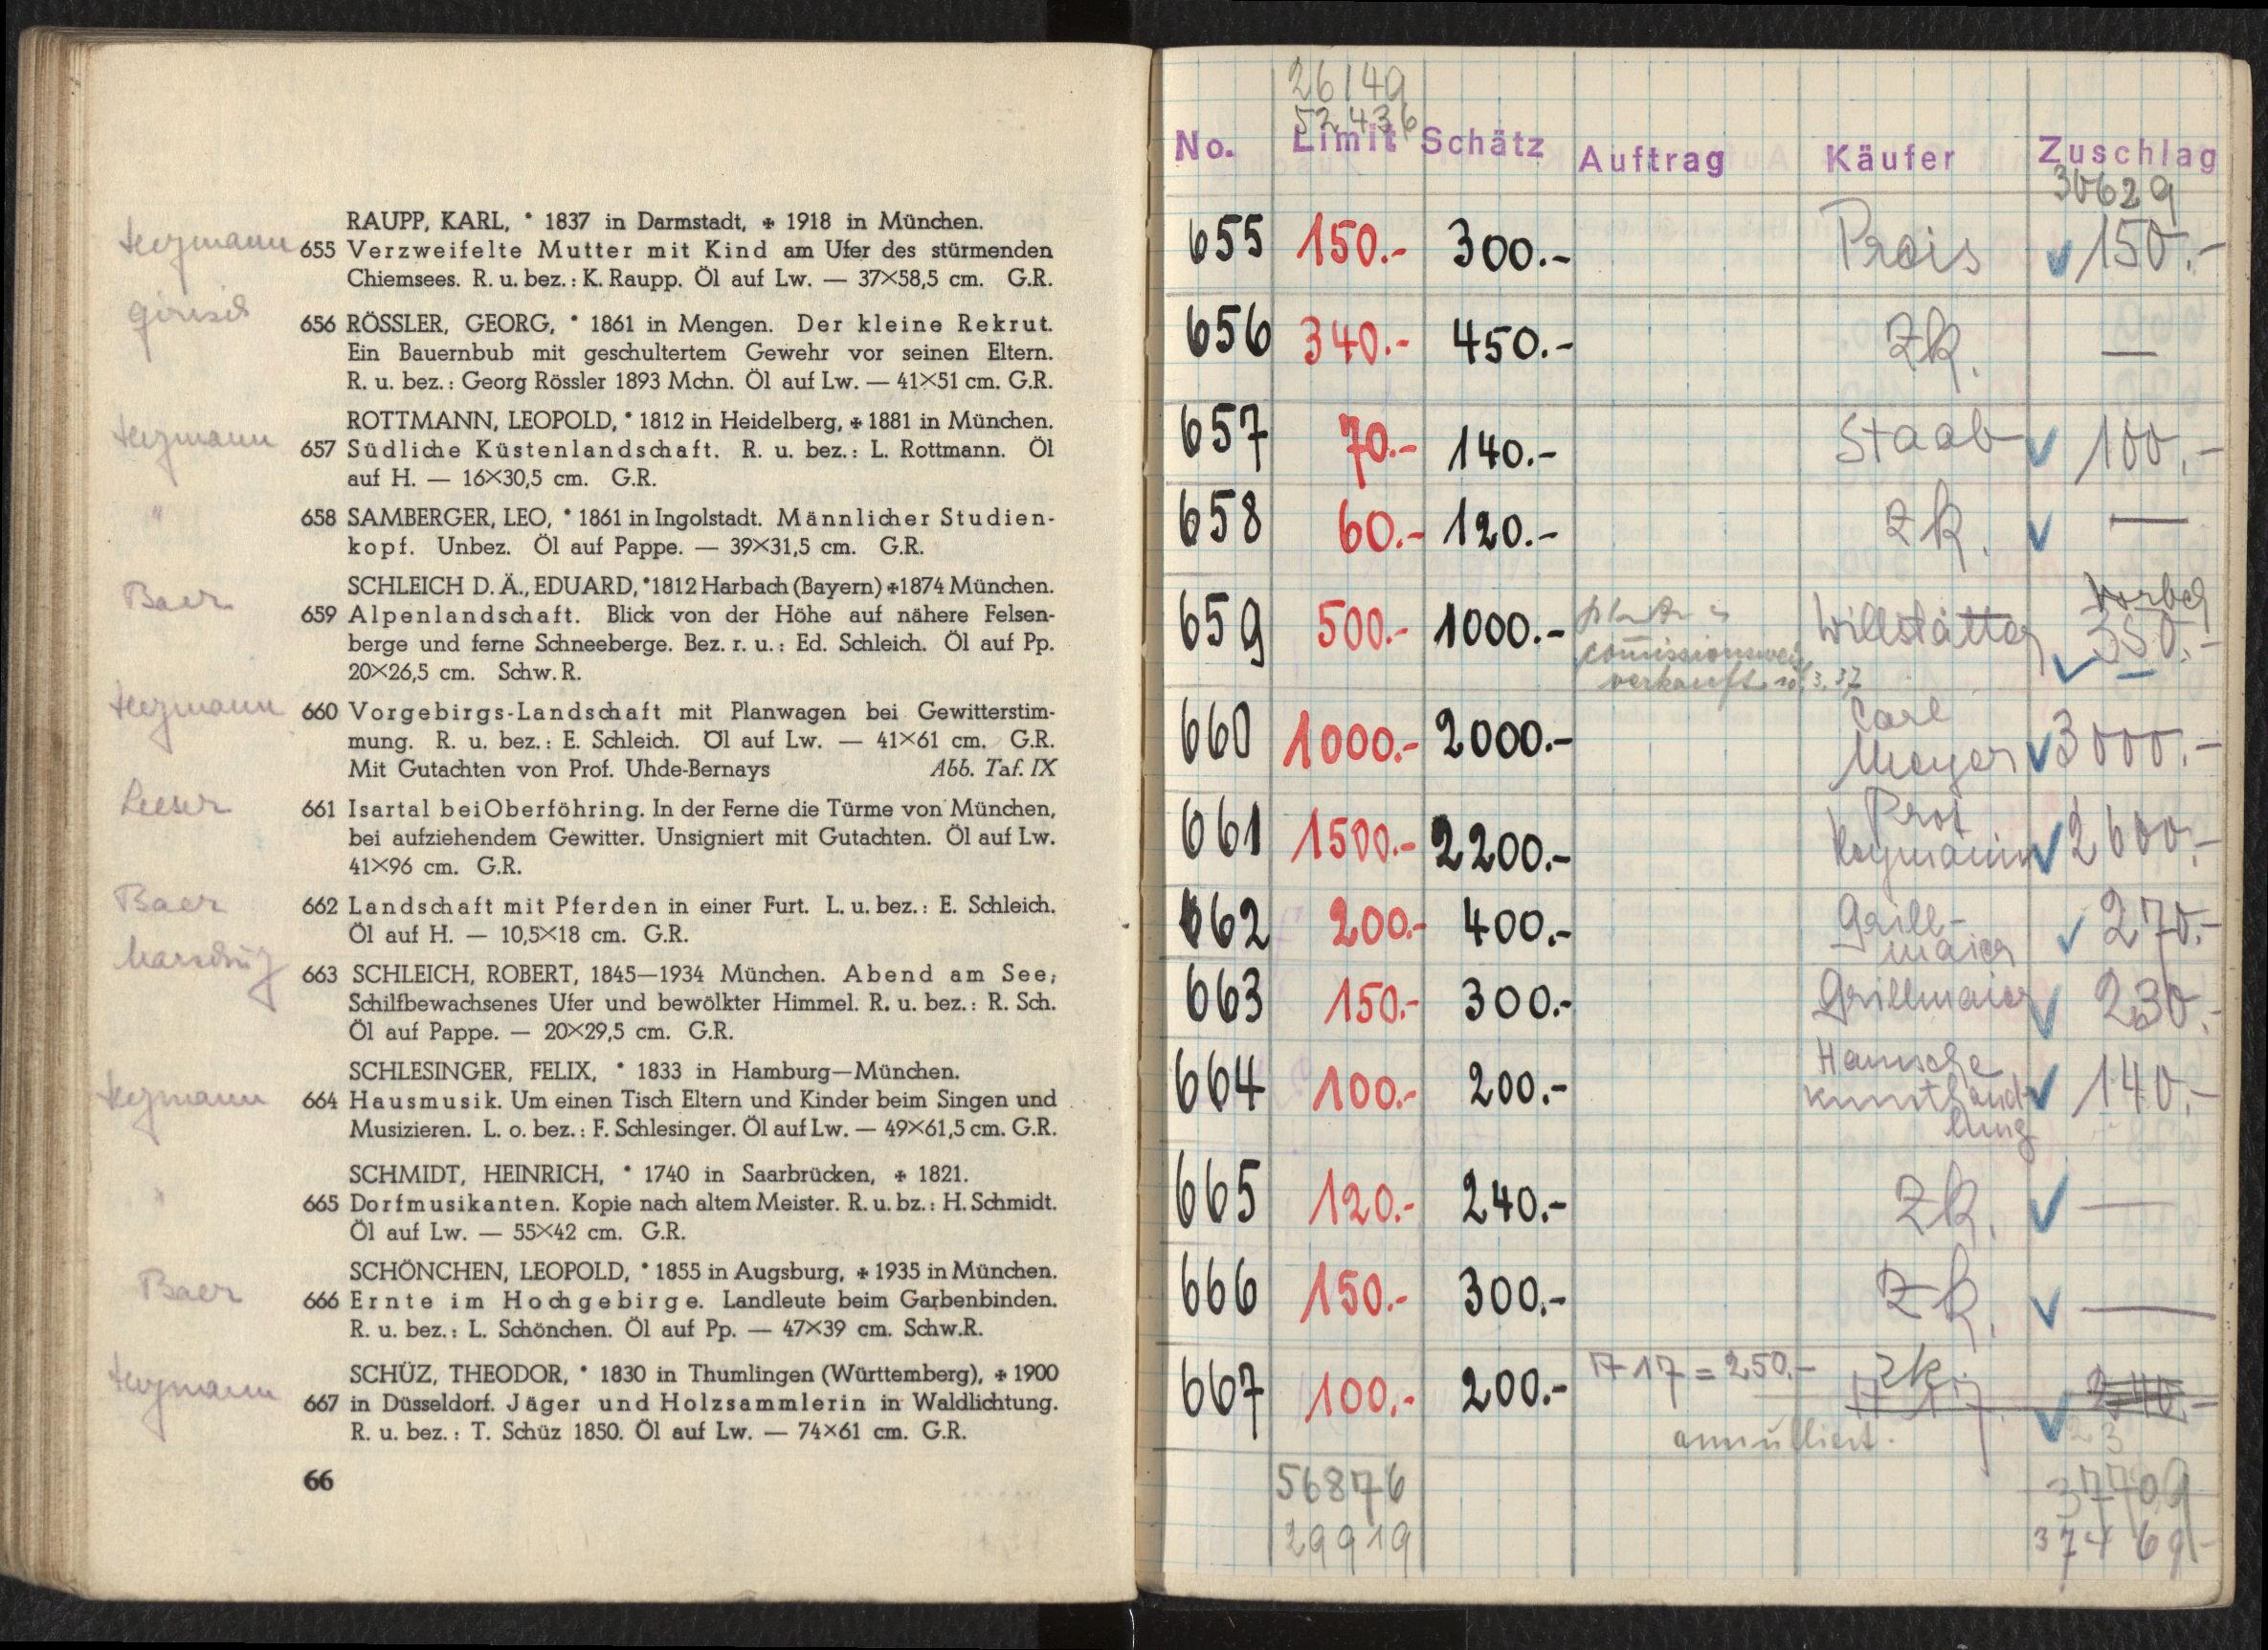 RAUPP, KARL, * 1837 in Darmstadt, ✠ 1918 in München.
655 Verzweifelte Mutter mit Kind am Ufer des stürmenden
Chiemsees. R. u. bez.: K. Raupp. Öl auf Lw. — 37×58,5 cm. G.R.
656 RÖSSLER, GEORG, * 1861 in Mengen. Der kleine Rekrut.
Ein Bauernbub mit geschultertem Gewehr vor seinen Eltern.
R. u. bez.: Georg Rössler 1893 Mchn. Öl auf Lw. — 41×51 cm. G.R.
ROTTMANN, LEOPOLD, * 1812 in Heidelberg, ✠ 1881 in München.
657 Südliche Küstenlandschaft. R. u. bez.: L. Rottmann. Öl
auf H. — 16×30,5 cm. G.R.
"
658 SAMBERGER, LEO, * 1861 in Ingolstadt. Männlicher Studien-
kopf. Unbez. Öl auf Pappe. — 39×31,5 cm. G.R.
SCHLEICH D. Ä., EDUARD, *1812 Harbach (Bayern) ✠1874 München.
Baer
659 Alpenlandschaft. Blick von der Höhe auf nähere Felsen-
berge und ferne Schneeberge. Bez. r. u.: Ed. Schleich. Öl auf Pp.
20×26,5 cm. Schw. R.
660 Vorgebirgs-Landschaft mit Planwagen bei Gewitterstim-
mung. R. u. bez.: E. Schleich. Öl auf Lw. — 41×61 cm. G.R.
Mit Gutachten von Prof. Uhde-Bernays Abb. Taf. IX
Leeser
661 Isartal beiOberföhring. In der Ferne die Türme von München,
bei aufziehendem Gewitter. Unsigniert mit Gutachten. Öl auf Lw.
41×96 cm. G.R.
Baer
662 Landschaft mit Pferden in einer Furt. L. u. bez.: E. Schleich.
Öl auf H. — 10,5×18 cm. G.R.
663 SCHLEICH, ROBERT, 1845—1934 München. Abend am See;
Schilfbewachsenes Ufer und bewölkter Himmel. R. u. bez.: R. Sch.
Öl auf Pappe. — 20×29,5 cm. G.R.
SCHLESINGER, FELIX, * 1833 in Hamburg—München.
664 Hausmusik. Um einen Tisch Eltern und Kinder beim Singen und
Musizieren. L. o. bez.: F. Schlesinger. Öl auf Lw. — 49×61,5 cm. G.R.
SCHMIDT, HEINRICH, * 1740 in Saarbrücken, ✠ 1821.
"
665 Dorfmusikanten. Kopie nach altem Meister. R. u. bz.: H. Schmidt.
Öl auf Lw. — 55×42 cm. G.R.
SCHÖNCHEN, LEOPOLD, * 1855 in Augsburg, ✠ 1935 in München.
Baer
666 Ernte im Hochgebirge. Landleute beim Garbenbinden.
R. u. bez.: L. Schönchen. Öl auf Pp. — 47×39 cm. Schw.R.
SCHÜZ, THEODOR, * 1830 in Thumlingen (Württemberg), ✠ 1900
667 in Düsseldorf. Jäger und Holzsammlerin in Waldlichtung.
R. u. bez.: T. Schüz 1850. Öl auf Lw. — 74×61 cm. G.R.
66
26149
52436
No. Limit Schätz Auftrag Käufer Zuschlag
30629
655 150.- 300.- Prois 150.-
656 340.- 450.- Zk. —
657 70.- 140.- Staab 100.-
658 60.- 120.- Zk. —
659 500.- 1000.- Willstätter 350.-
verkauft 10.3.37
660 1000.- 2000.- Carl
Meyer 3000.-
661 1500.- 2200.- 2600.-
662 200.- 400.- Grill-
maier 270.-
663 150.- 300.- Grillmaier 230.-
664 100.- 200.- 140.-
665 120.- 240.- Zk. —
666 150.- 300.- Zk. —
667 100.- 200.- 717 = 250.- Zk. 240.-
annulliert.
56876
29919
37709
37469.-